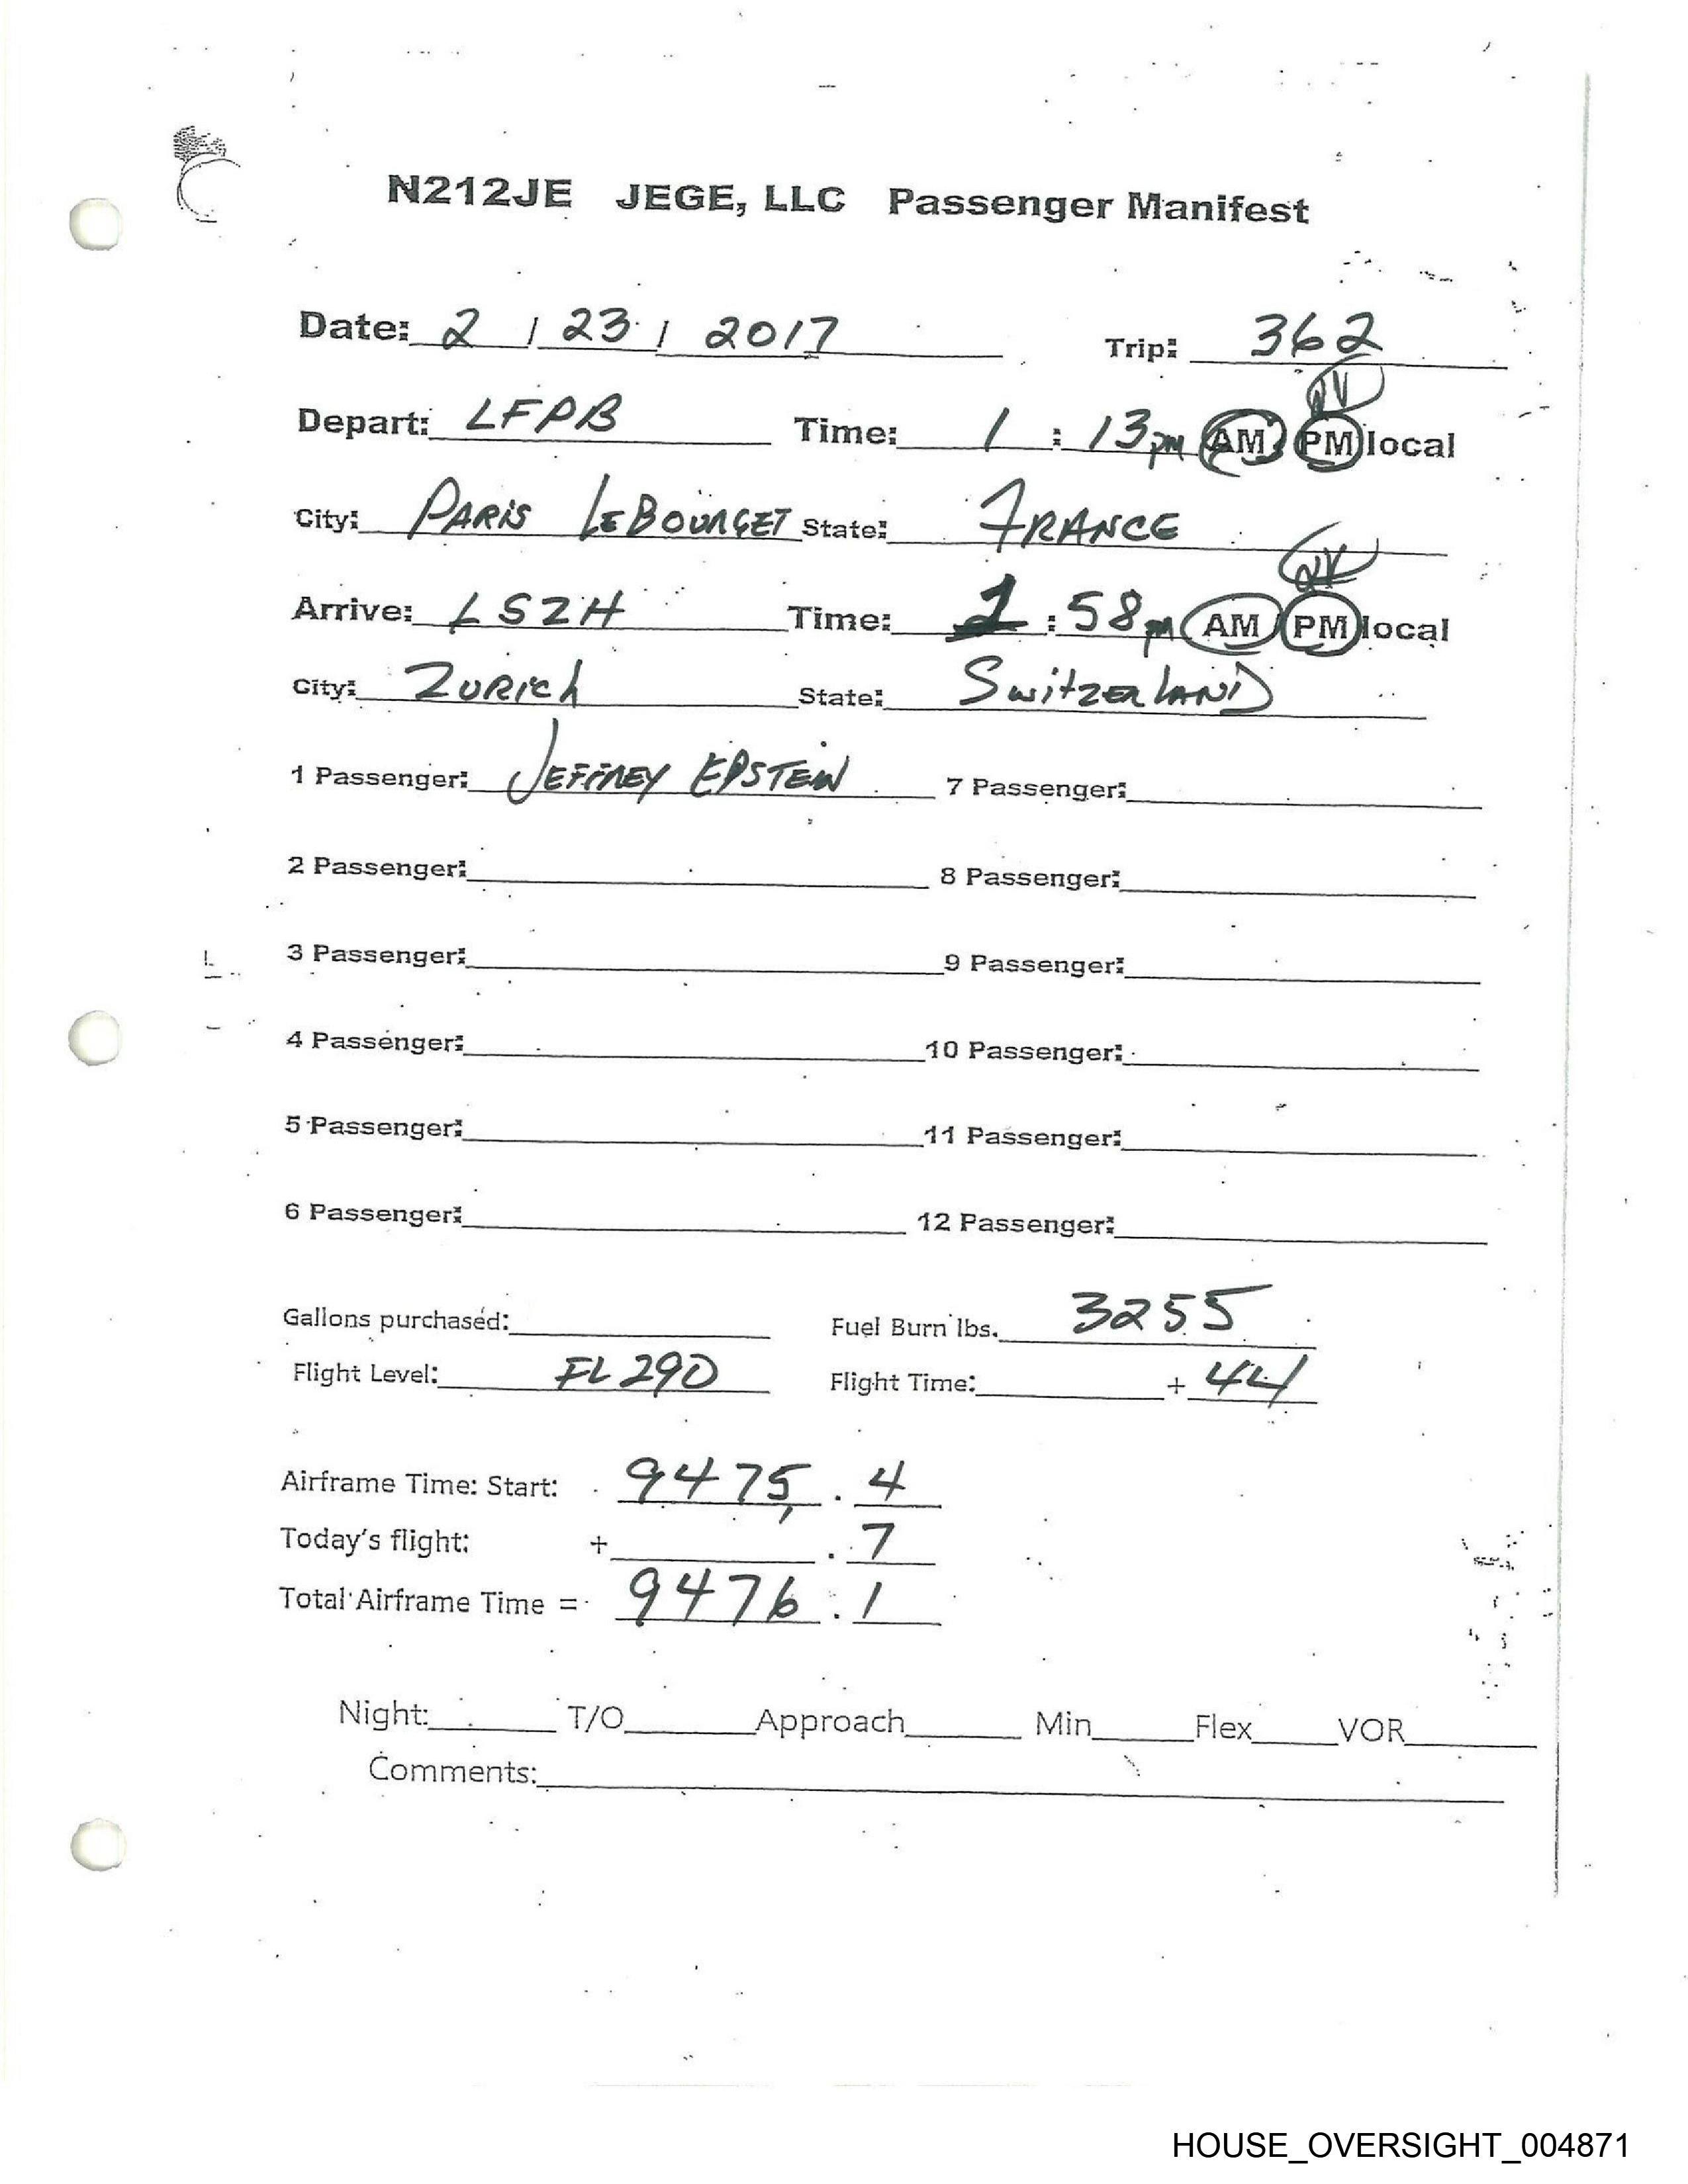 N212JE JEGE, LLC Passenger Manifest
Date: 2 / 23 / 2017 Trip: 362
Depart: LFPB Time: 1 : 13 pm AM PM local
City: PARIS LEBOURGET State: FRANCE
Arrive: LSZH Time: 1 : 58 pm AM PM local
City: ZURICH State: SWITZERLAND
1 Passenger: JEFFREY EPSTEIN 7 Passenger:
2 Passenger: 8 Passenger:
3 Passenger: 9 Passenger:
4 Passenger: 10 Passenger:
5 Passenger: 11 Passenger:
6 Passenger: 12 Passenger:
Gallons purchased: Fuel Burn lbs. 3255
Flight Level: FL290 Flight Time: + 44
Airframe Time: Start: 9475 . 4
Today's flight: + . 7
Total Airframe Time = 9476 . 1
Night: T/O Approach Min Flex VOR
Comments:
HOUSE_OVERSIGHT_004871